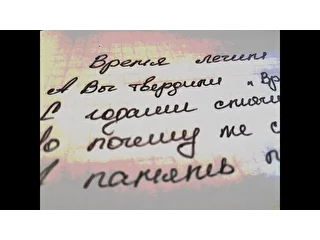 Время лечит
А Вы твердили "Вр
С годами
почему же с
память п